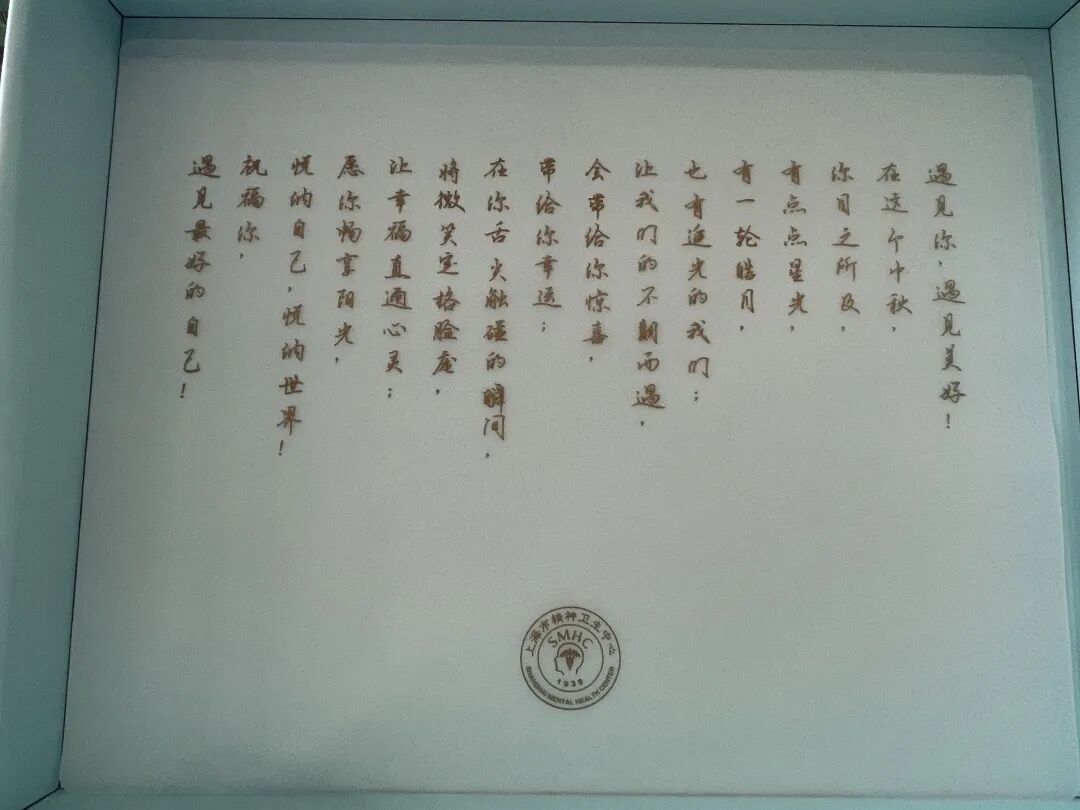 遇见你，遇见美好！
在这个中秋，
你目之所及，
有点点星光，
有一轮皓月，
也有逐光的我们；
让我们的不期而遇，
会带给你惊喜，
带给你幸运；
在你舌尖触碰的瞬间，
将微笑定格脸庞，
让幸福直通心灵；
愿你畅享阳光，
悦纳自己，悦纳世界！
祝福你，
遇见最好的自己！
上海市精神卫生中心
SMHC
1935
SHANGHAI MENTAL HEALTH CENTER